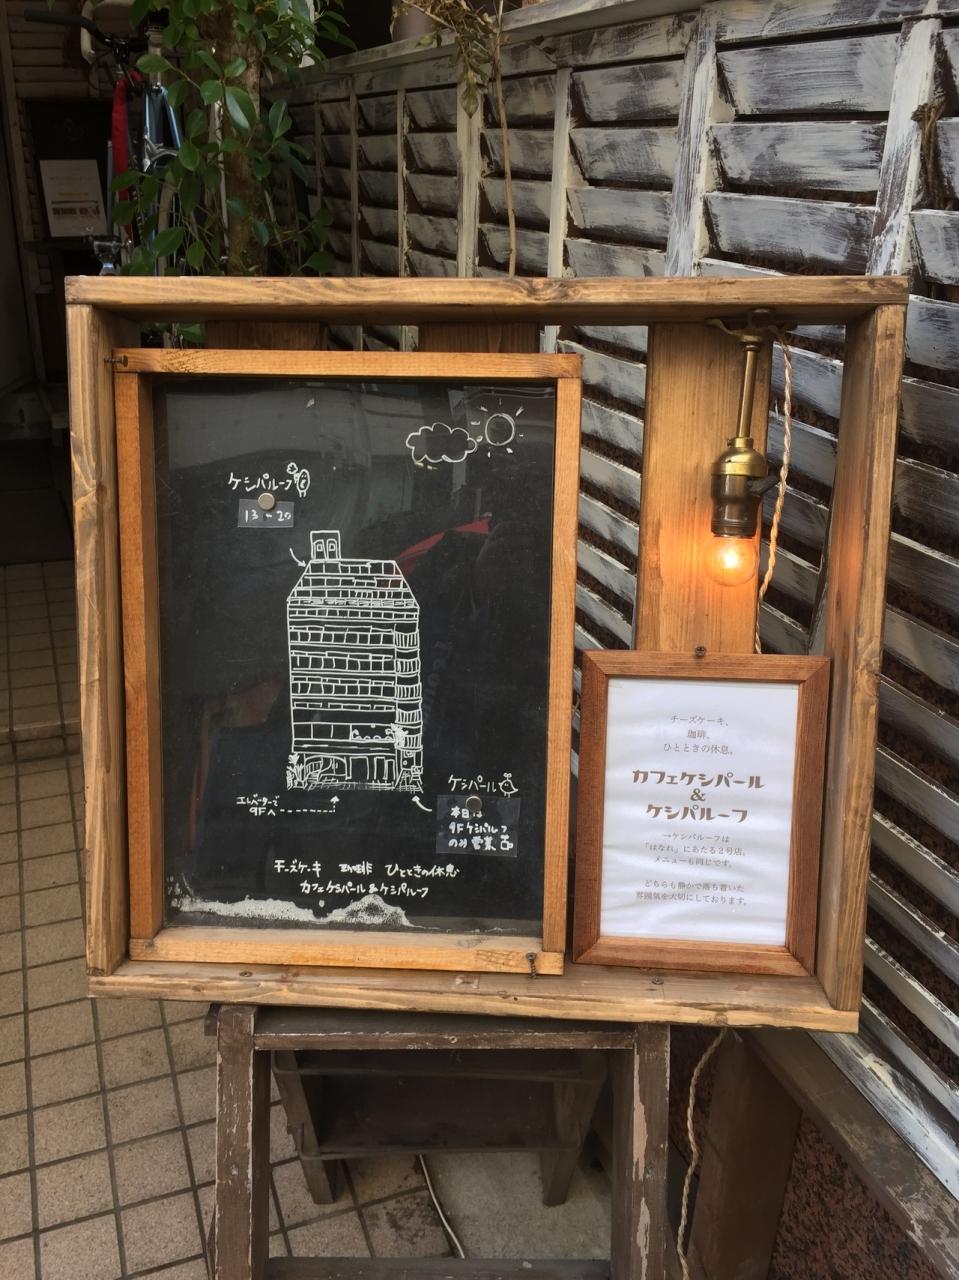 ケシパルーフ
13-20
エレベーターで
9Fへ
ケシパール
本日は
9Fケシパルーフ
のみ営業
チーズケキ 珈琲 ひとときの休息
カフェケシパール&ケシパルーフ
チーズケーキ、
珈琲、
ひとときの休息。
カフェケシパール
&
ケシパルーフ
→ケシパルーフは
「はなれ」にあたる2号店。
メニューも同じです。
どちらも静かで落ち着いた
雰囲気を大切にしております。